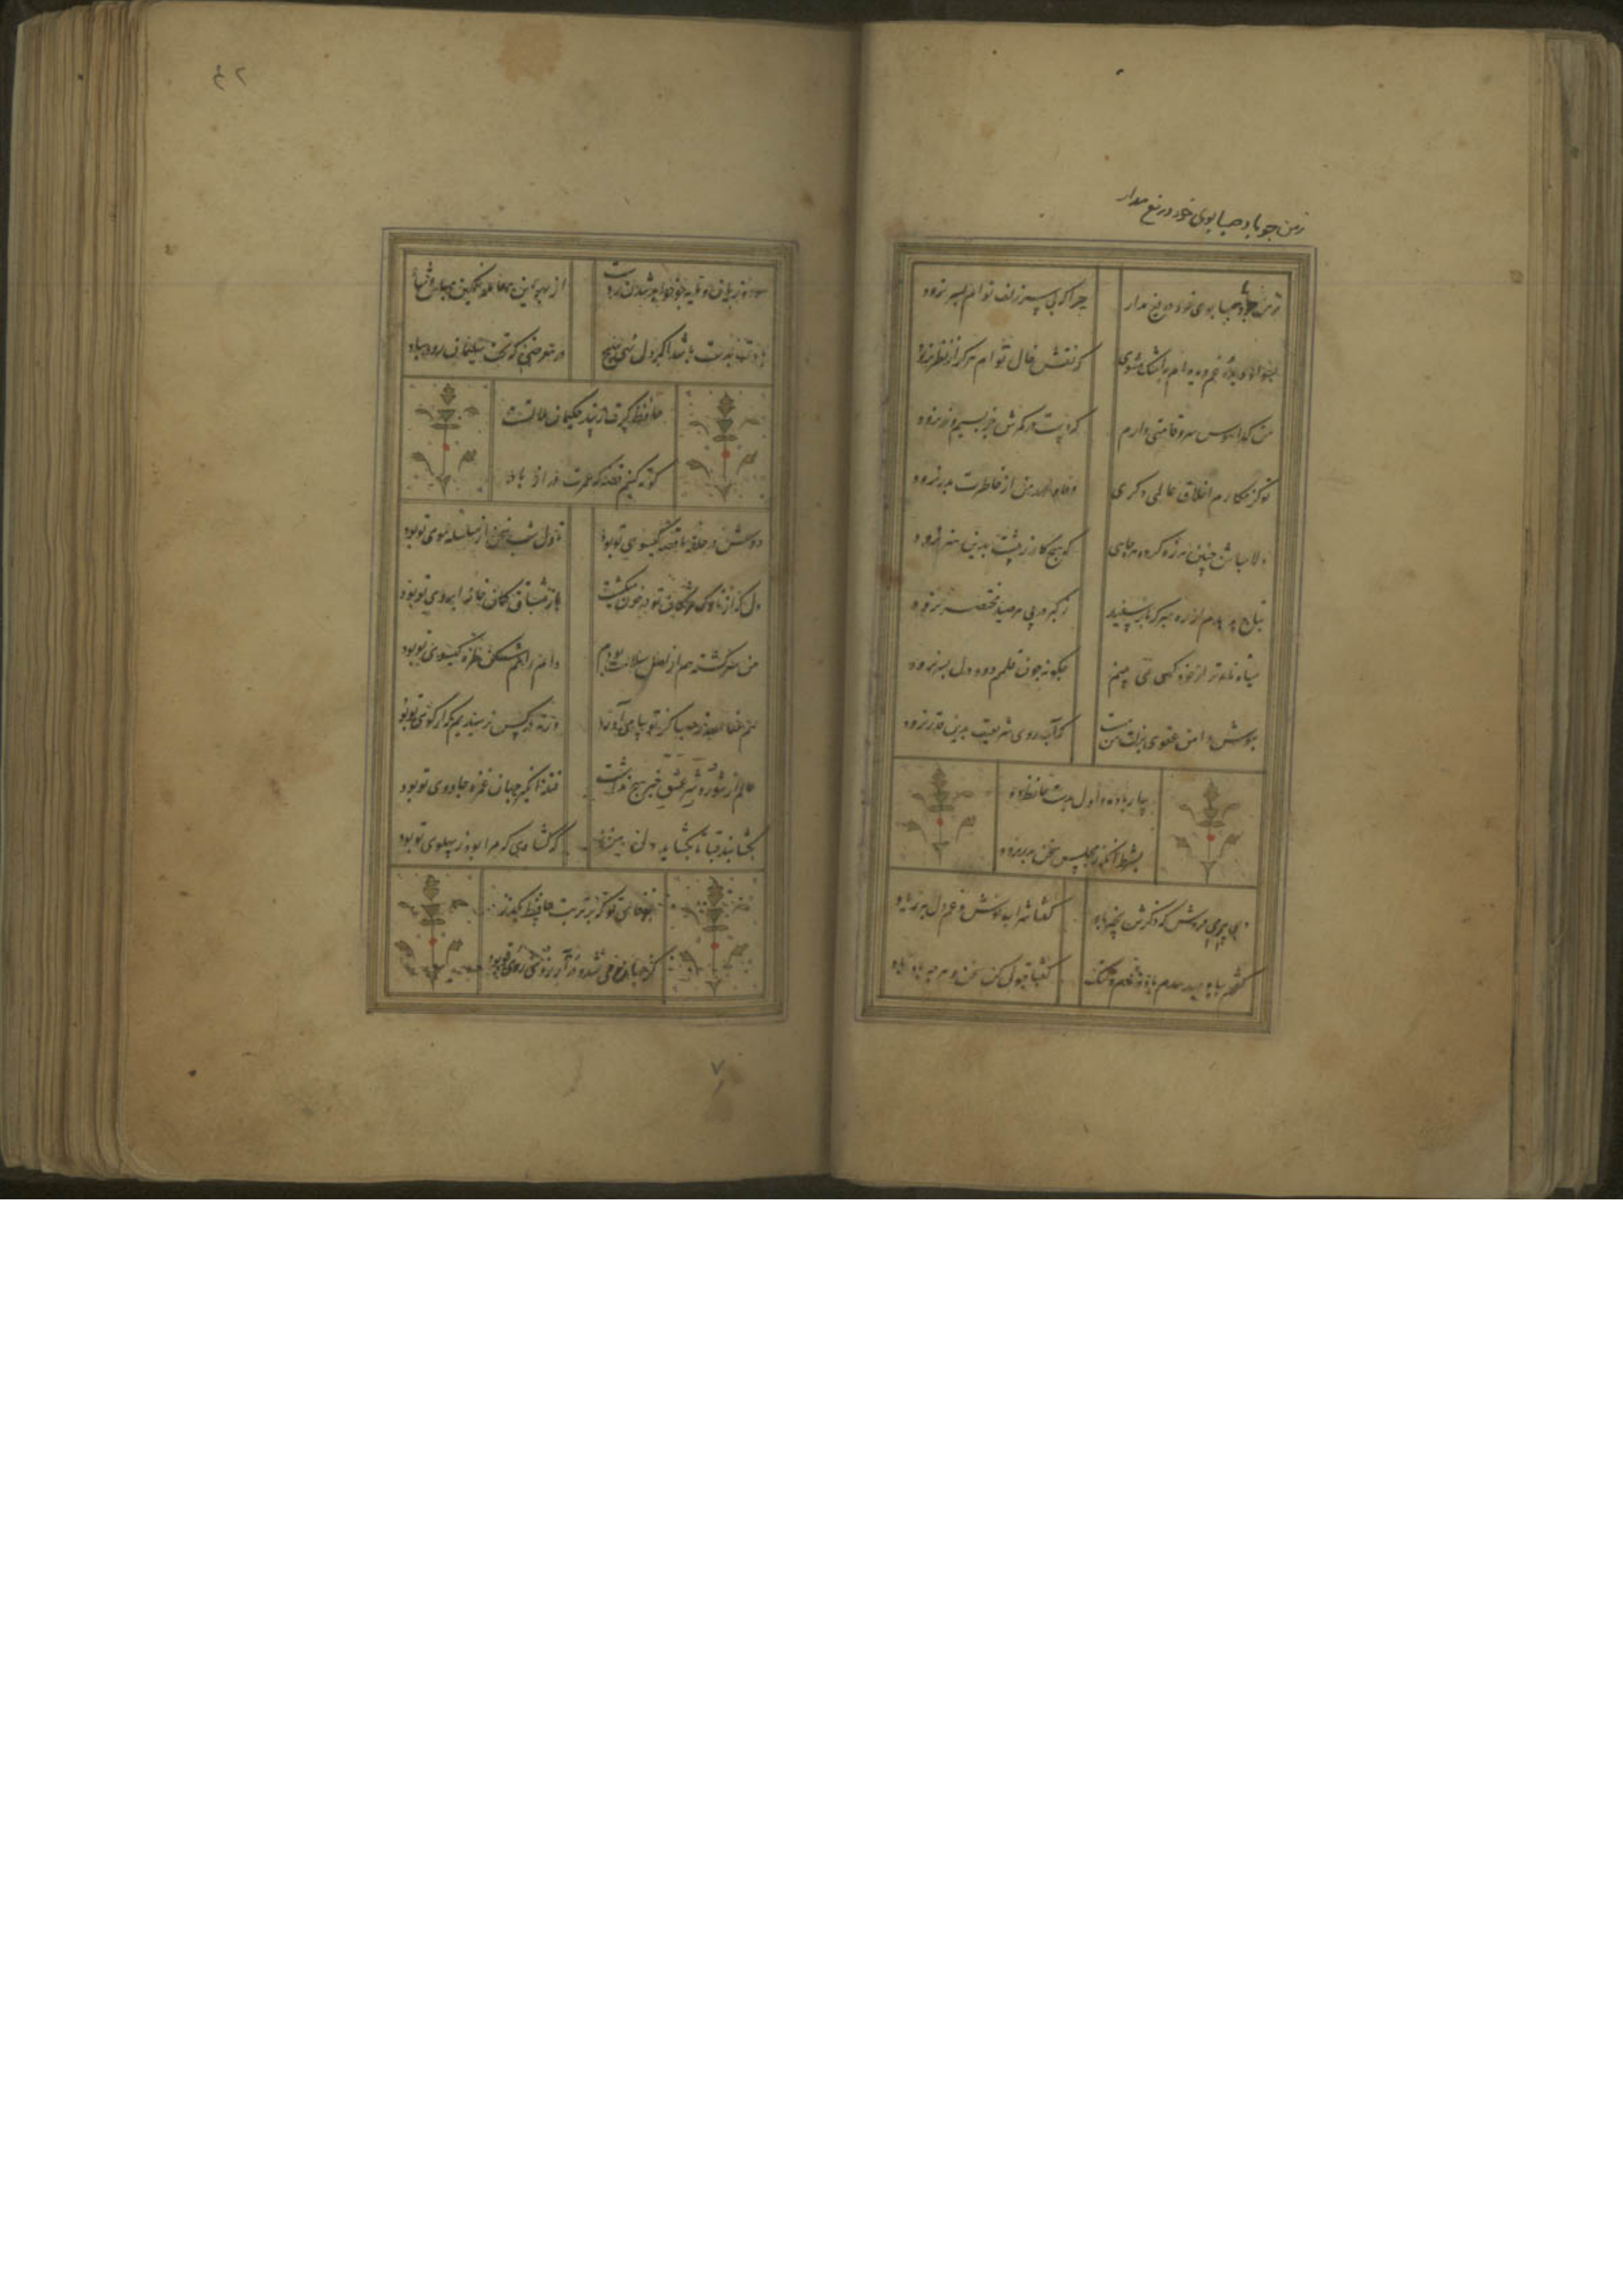 زمن چو باد صبا بوی خود دریغ مدار
ز من چو باد صبا بوی خود دریغ مدار چرا که بی سر زلف توام بسر نرود
که نقش خال توام هرگز از نظر نرود
من گدا هوس سرو قامتی دارم که دست در کمرش جز بسیم و زر نرود
تو کز مکارم اخلاق عالمی دکری وفاء عهد من از خاطرت بدر نرود
دلا مباش چنین هرزه گرد و هر جایی که هیچ کار ز پیشت بدین هنر نرود
بتاج هدهدم از ره مبر که باز سپید ز کبر در پی هر صید مختصر نرود
سیاه نامه تر از خود کسی نمی بینم چگونه چون قلمم دود دل بسر نرود
بپوش دامن عفوی بزلت من مست که آب روی شریعت بدین قدر نرود
بیار باده و اول بدست حافظ ده
بشرط آنکه ز مجلس سخن بدر نرود
دی پیر می فروش که ذکرش بخیر باد گفتا شراب نوش و غم دل ببر ز یاد
گفتم بباد میدهدم باده نام و ننگ گفتا قبول کن سخن و هرچه باد باد
۴۲
سود و زیان و مایه چو خواهد شدن ز دست از بهر این معامله غمگین مباش و شاد
بادت بدست باشد اگر دل نهی بهیچ در معرضی که تخت سلیمان رود بباد
حافظ گرت ز پند حکیمان ملالتست
کوته کنیم قصه که عمرت دراز باد
دوش در حلقه ما قصه گیسوی تو بود تا دل شب سخن از سلسله موی تو بود
دل که از ناوک مژگان تو در خون میگشت باز مشتاق کمان خانه ابروی تو بود
من سرگشته هم از اهل سلامت بودم دام راهم شکن طره گیسوی تو بود
هم عفا الله ز صبا کز تو پیامی آورد ورنه در کس نرسیدیم که از کوی تو بود
عالم از شور و شر عشق خبر هیچ نداشت فتنه انگیز جهان غمزه جادوی تو بود
بگشا بند قبا تا بگشاید دل من که گشادی که مرا بود ز پهلوی تو بود
بوفای تو که بر تربت حافظ بگذر
کز جهان می شد و در آرزوی روی تو بود
۷